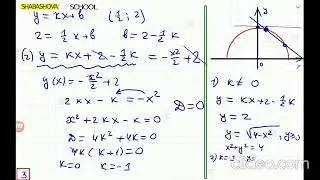 SHABASHOVA SCHOOL
y = kx + b (1/2; 2)
2 = 1/2 k + b b = 2 - 1/2 k
(2) y = kx + 2 - 1/2 k = -x²/2 + 2
y(x) = -x²/2 + 2
2kx - k = -x²
D = 0
x² + 2kx - k = 0
D = 4k² + 4k = 0
4k(k + 1) = 0
k = 0 k = -1
3
y
x
1) k ≠ 0
y = kx + 2 - 1/2 k
y = 2
y = √4-x², y ≥ 0
x² + y² = 4
2) k = -1
clideo.com